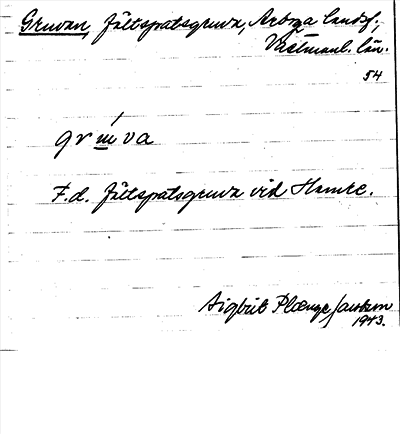 Gruvan, fältspatsgruva, Arboga landsf.,
Västmanl. län.
54
grɯ́va
F.d. fältspatsgruva vid Hamre.
Sigbrit Plænge Jacobson
1943.